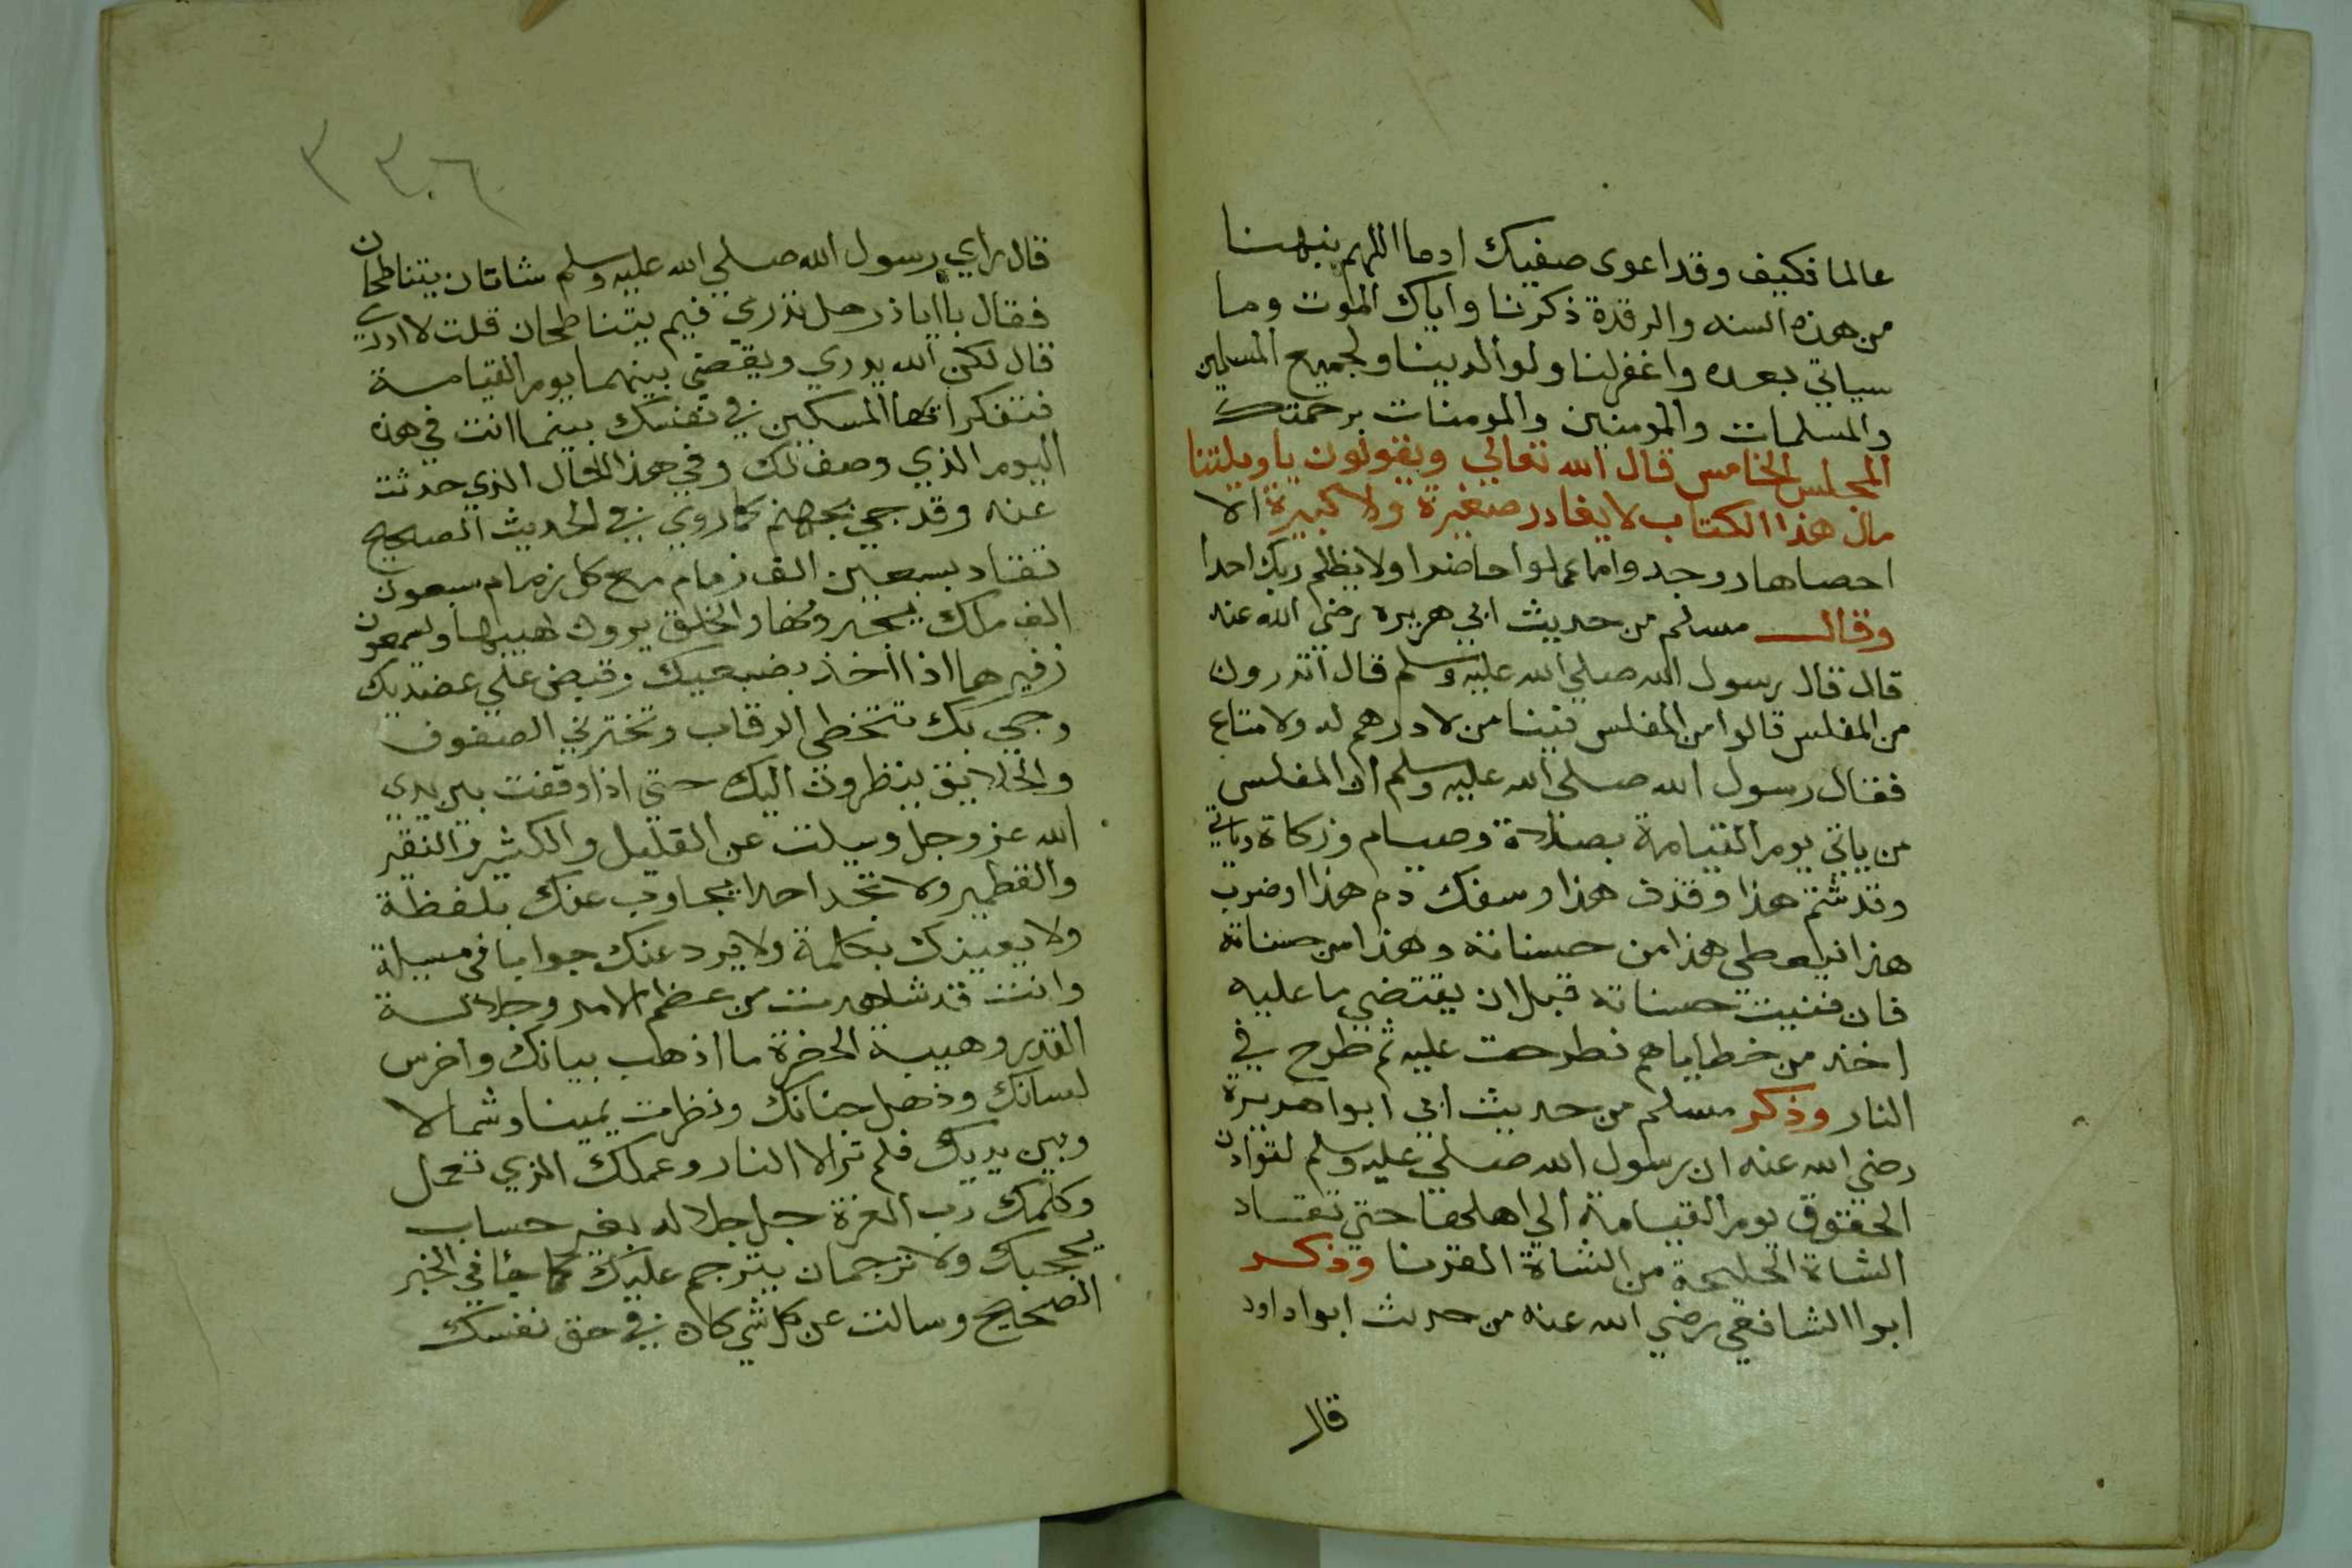 عالما فكيف وقد اعوى صفيك ادما اللهم نبهنا
من هذه السنه والرقدة ذكرنا واياك الموت وما
سياتي بعده واغفر لنا ولوالدينا ولجميع المسلمين
والمسلمات والمومنين والمومنات برحمتك
المجلس الخامس قال الله تعالي ويقولون ياويلتنا
مال هذا الكتاب لايغادر صغيرة ولا كبيرة الا
احصاها ووجدوا ما عملوا حاضرا ولا يظلم ربك احدا
وقال مسلم من حديث ابي هريره رضي الله عنه
قال قال رسول الله صلي الله عليه وسلم قال اتدرون
من المفلس قالوا من المفلس فينا من لا درهم له ولا متاع
فقال رسول الله صلي الله عليه وسلم ان المفلس
من ياتي يوم القيامة بصلاة وصيام وزكاة وياتي
وقد شتم هذا وقذف هذا وسفك دم هذا اوضرب
هذا فيعطي هذا من حسناته وهذا من حسناته
فان فنيت حسناته قبل ان يقتضي ما عليه
اخذ من خطاياهم فطرحت عليه ثم طرح في
النار وذكر مسلم من حديث ابي ابوا هريرة
رضي الله عنه ان رسول الله صلي عليه وسلم لتوادن
الحقوق يوم القيامة الي اهلها حتي تقتاد
الشاة الجليحة من الشاة القرنا وذكر
ابوا الشافعي رضي الله عنه من حديث ابوا داود
قال
٣٣٠٦
قال راي رسول الله صلي الله عليه وسلم شاتان يتناطحان
فقال ياابا ذر هل تدري فيم يتناطحان قلت لا ادري
قال لكن الله يدري ويقضي بينهما يوم القيامة
فتفكر ايها المسكين في نفسك بينما انت في هذه
اليوم الذي وصف لك وفي هذا الحال الذي حدثت
عنه وقد جي بجهنم كما روي في الحديث الصحيح
تقتاد بسبعين الف زمام مع كل زمام سبعون
الف ملك يجرونها والخلق يرون لهيبها ويسمعون
زفيرها اذا اخذ بضبعيك وقبض علي عضديك
وجي بك تتخطي الرقاب وتخترق الصفوف
والخلايق ينظرون اليك حتي اذا وقفت بين يدي
الله عز وجل وسيلت عن القليل والكثير والنقير
والقطمير ولا تجد احدا يجاوب عنك بلفظة
ولا يعينك بكلمة ولا يرد عنك جوابا في مسيلة
وانت قد شاهدت من عظم الامر وجلالة
القدر وهيبة الحضرة ما اذهب بيانك واخرس
لسانك وذهل جنانك ونظرت يمينا وشمالا
وبين يديك فلم تر الا النار وعملك الذي تعمل
وكلمك رب العزة جل جلاله بغير حساب
يحجبك ولا ترجمان يترجم عليك كما جا في الخبر
الصحيح وسالت عن كل شي كان في حق نفسك